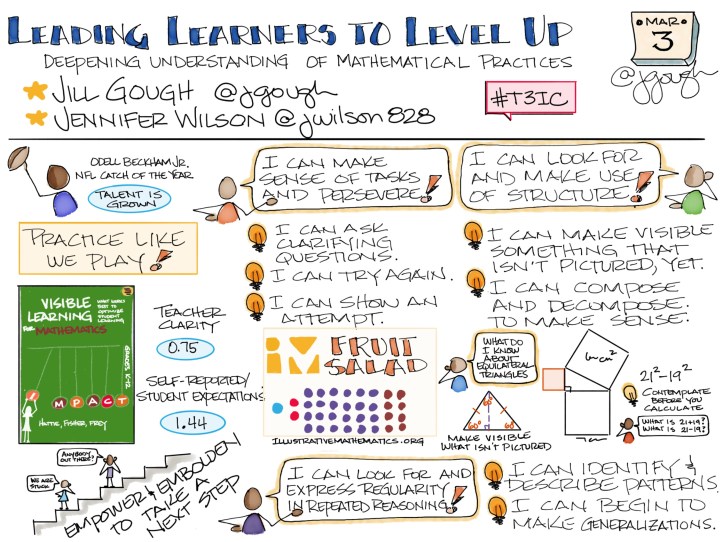 LEADING LEARNERS TO LEVEL UP
DEEPENING UNDERSTANDING OF MATHEMATICAL PRACTICES
JILL GOUGH @jgough
JENNIFER WILSON @jwilson828
#T3IC
MAR
3
@jgough
ODELL BECKHAM JR.
NFL CATCH OF THE YEAR
TALENT IS
GROWN
PRACTICE LIKE
WE PLAY!
I CAN MAKE
SENSE OF TASKS
AND PERSEVERE!
I CAN ASK
CLARIFYING
QUESTIONS.
I CAN TRY AGAIN.
I CAN SHOW AN
ATTEMPT.
I CAN LOOK FOR
AND MAKE USE
OF STRUCTURE!
I CAN MAKE VISIBLE
SOMETHING THAT
ISN'T PICTURED, YET.
I CAN COMPOSE
AND DECOMPOSE
TO MAKE SENSE.
VISIBLE
LEARNING
FOR MATHEMATICS
WHAT WORKS
BEST TO
OPTIMIZE
STUDENT
LEARNING
GRADES K-12
IMPACT
HATTIE, FISHER, FREY
TEACHER
CLARITY
0.75
SELF-REPORTED/
STUDENT EXPECTATIONS
1.44
IM FRUIT
SALAD
ILLUSTRATIVEMATHEMATICS.ORG
WHAT DO
I KNOW
ABOUT
EQUILATERAL
TRIANGLES
60° 60°
MAKE VISIBLE
WHAT ISN'T PICTURED
21²-19²
CONTEMPLATE
BEFORE YOU
CALCULATE
WHAT IS 21+19?
WHAT IS 21-19?
ANYBODY
OUT THERE?
WE ARE
STUCK
EMPOWER & EMBOLDEN
TO TAKE A
NEXT STEP
I CAN LOOK FOR AND
EXPRESS REGULARITY
IN REPEATED REASONING!
I CAN IDENTIFY &
DESCRIBE PATTERNS.
I CAN BEGIN TO
MAKE GENERALIZATIONS.